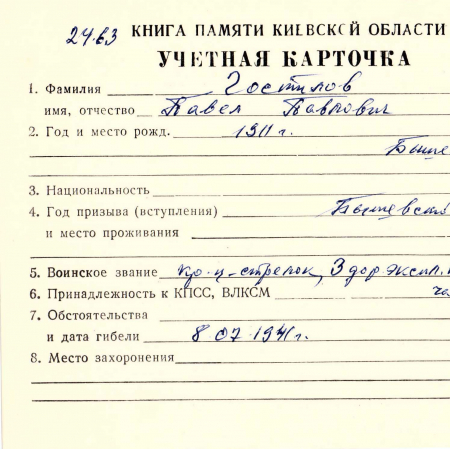 2463 КНИГА ПАМЯТИ КИЕВСКОЙ ОБЛАСТИ
УЧЕТНАЯ КАРТОЧКА
1. Фамилия Гостилов
имя, отчество Павел Павлович
2. Год и место рожд. 1911 г.
Быше
3. Национальность
4. Год призыва (вступления) Бышевский
и место проживания
5. Воинское звание кр-ц-стрелок, 3 дор. экспл.
6. Принадлежность к КПСС, ВЛКСМ
7. Обстоятельства
и дата гибели 8 07.1941г.
8. Место захоронения